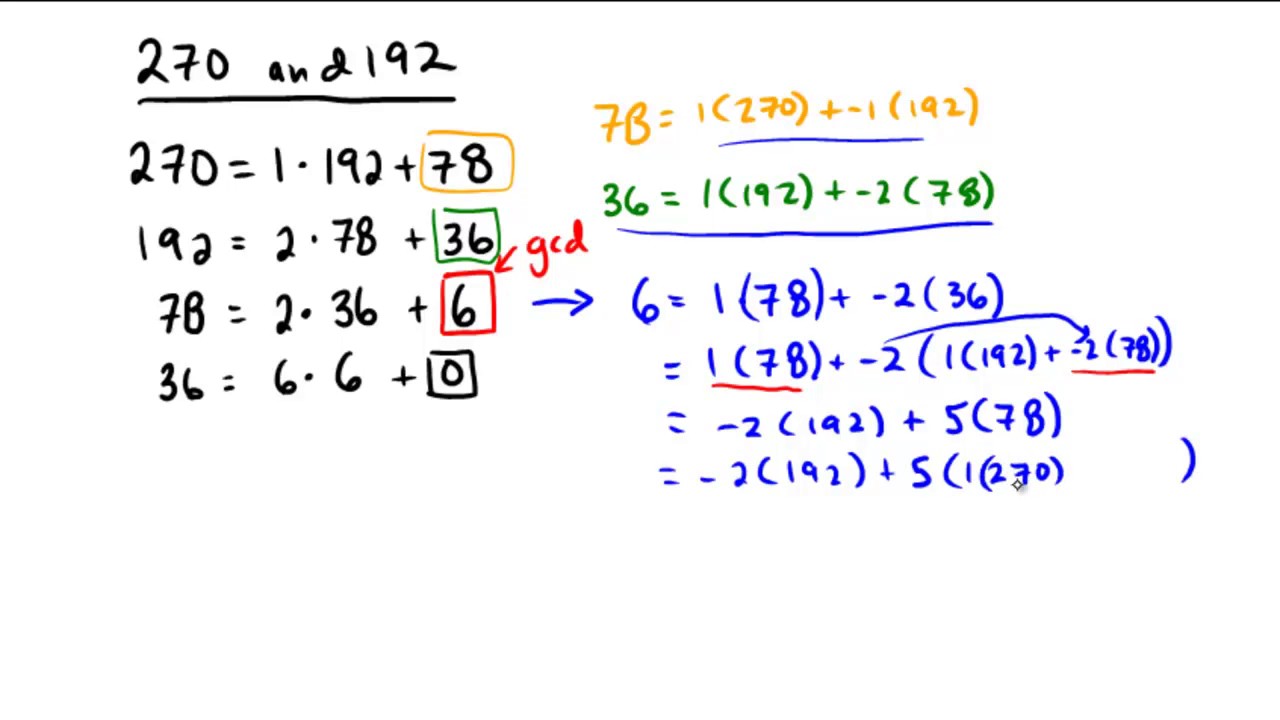 270 and 192
270 = 1 · 192 + 78
192 = 2 · 78 + 36
gcd
78 = 2 · 36 + 6
36 = 6 · 6 + 0
78 = 1(270) + -1(192)
36 = 1(192) + -2(78)
→ 6 = 1(78) + -2(36)
= 1(78) + -2(1(192) + -2(78))
= -2(192) + 5(78)
= -2(192) + 5(1(270) )